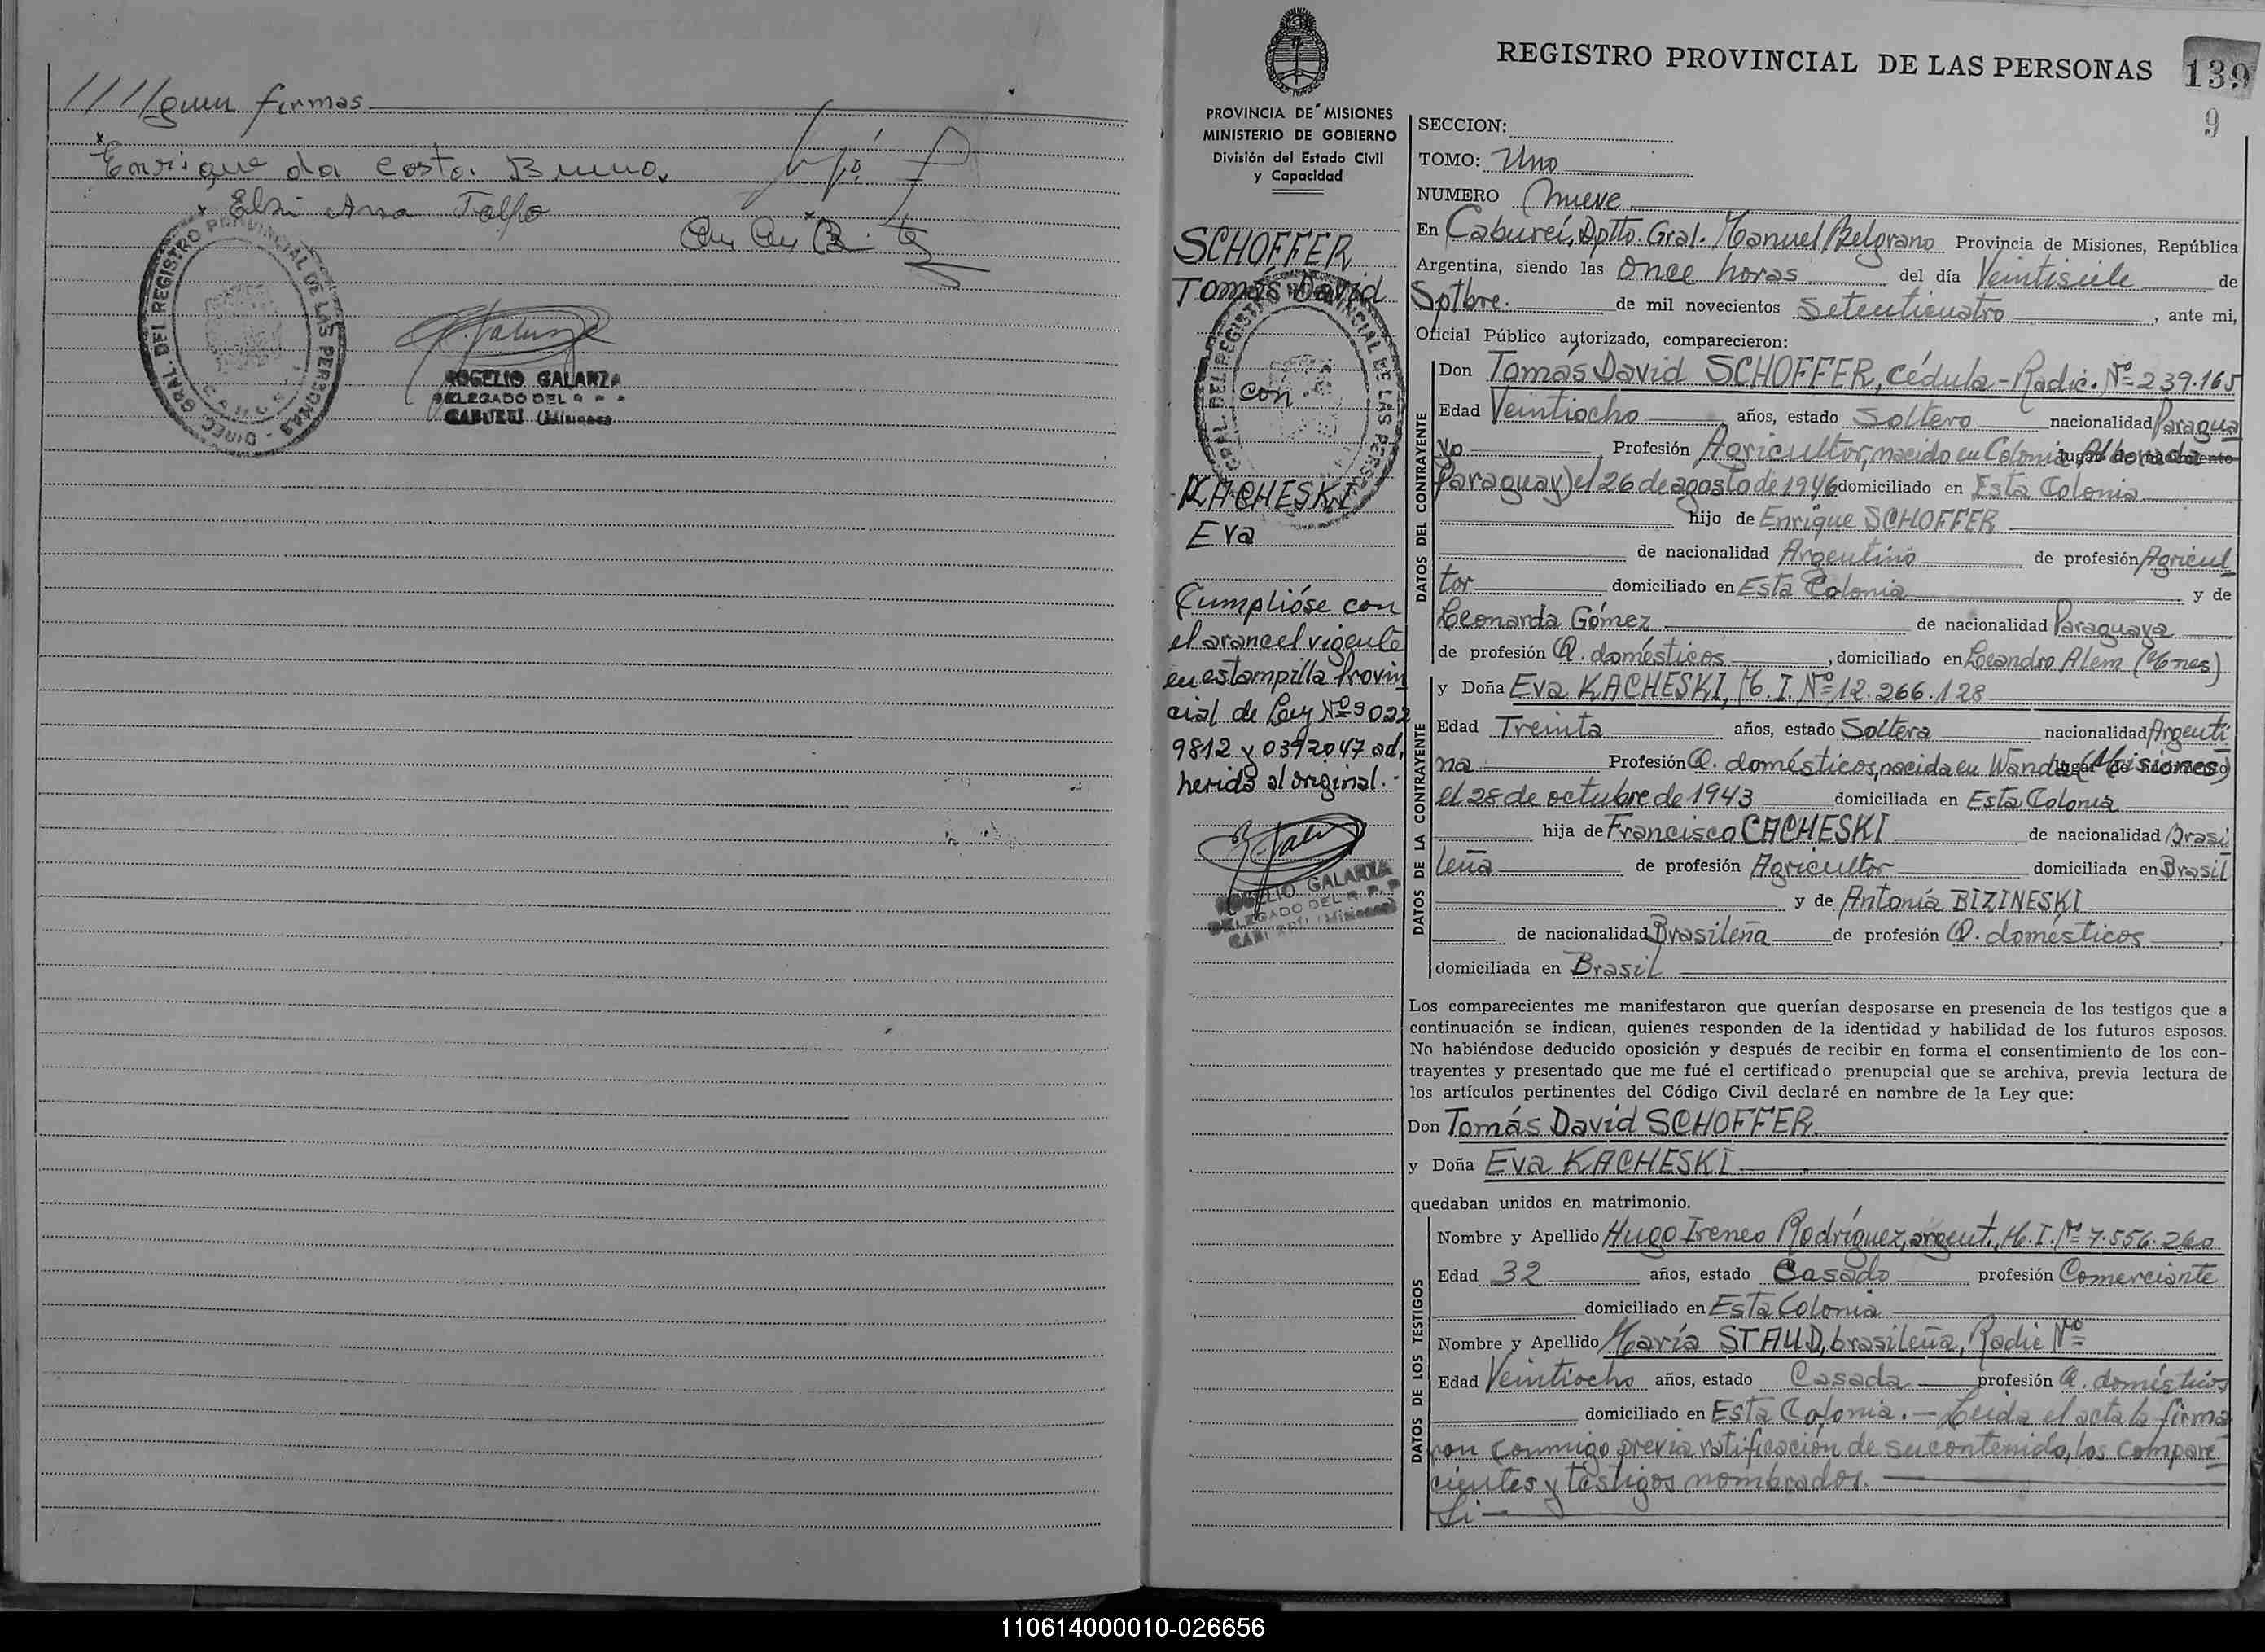 ////guen firmas
Enrique da Costa. Bruno.
Elsi Ana Tolfo
DIREC. GRAL. DEL REGISTRO PROVINCIAL DE LAS PERSONAS
ROGELIO GALARZA
DELEGADO DEL R. P. P.
CABUREI (Misiones)
PROVINCIA DE MISIONES
MINISTERIO DE GOBIERNO
División del Estado Civil
y Capacidad
SCHOFFER
Tomás David
con
KACHESKI
Eva
Cumplióse con
el arancel vigente
en estampilla Provin
cial de Ley Nº 9022
9812 y 0392047 ad,
herida al original.-
ROGELIO GALARZA
DELEGADO DEL R. P. P.
CABUREI (Misiones)
REGISTRO PROVINCIAL DE LAS PERSONAS
139
9
SECCION:
TOMO: Uno
NUMERO Nueve
En Cabureí, Dptto. Gral. Manuel Belgrano Provincia de Misiones, República
Argentina, siendo las Once horas del día Veintisiete de
Sptbre. de mil novecientos Setenticuatro, ante mi,
Oficial Público autorizado, comparecieron:
DATOS DEL CONTRAYENTE
Don Tomás David SCHOFFER, cédula-Radic. Nº 239.165
Edad Veintiocho años, estado Soltero nacionalidad Paragua
yo Profesión Agricultor, nacido en Colonia Alborada lugar de nacimiento
Paraguay) el 26 de agosto de 1946 domiciliado en Esta Colonia
hijo de Enrique SCHOFFER
de nacionalidad Argentino de profesión Agricul
tor domiciliado en Esta Colonia y de
Leonarda Gómez de nacionalidad Paraguaya
de profesión Q. domésticos, domiciliado en Leandro Alem (Mnes)
DATOS DE LA CONTRAYENTE
y Doña Eva KACHESKI, M. I. Nº 12.266.128
Edad Treinta años, estado Soltera nacionalidad Argenti
na Profesión Q. domésticos, nacida en Wanda (Misiones)
el 28 de octubre de 1943 domiciliada en Esta Colonia
hija de Francisco CACHESKI de nacionalidad Brasi
leña de profesión Agricultor domiciliada en Brasil
y de Antonia BIZINESKI
de nacionalidad Brasileña de profesión Q. domésticos,
domiciliada en Brasil
Los comparecientes me manifestaron que querían desposarse en presencia de los testigos que a
continuación se indican, quienes responden de la identidad y habilidad de los futuros esposos.
No habiéndose deducido oposición y después de recibir en forma el consentimiento de los con-
trayentes y presentado que me fué el certificado prenupcial que se archiva, previa lectura de
los artículos pertinentes del Código Civil declaré en nombre de la Ley que:
Don Tomás David SCHOFFER.
y Doña Eva KACHESKI
quedaban unidos en matrimonio.
DATOS DE LOS TESTIGOS
Nombre y Apellido Hugo Ireneo Rodríguez, argent., M. I. Nº 7.556.260
Edad 32 años, estado Casado profesión Comerciante
domiciliado en Esta Colonia
Nombre y Apellido María STAUD, brasileña, Radic Nº
Edad Veintiocho años, estado Casada profesión Q. domésticos
domiciliado en Esta Colonia.- Leida el acta la firma
ron conmigo previa ratificación de su contenido, los compare
cientes y testigos nombrados.
Si-
110614000010-026656